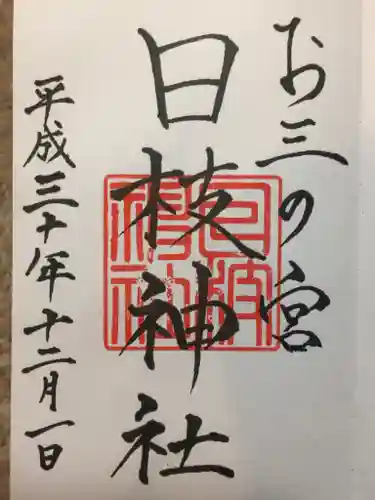 お三の宮
日枝神社
日枝神社
平成三十年十二月一日